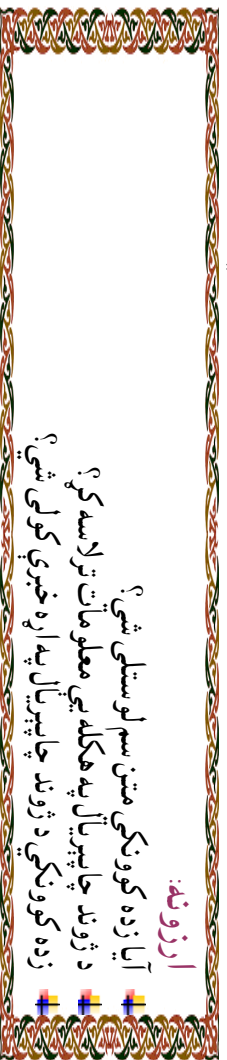 ارزونه:
آیا زده کوونکی متن سم لوستلی شي؟
د ژوند چاپیریال په هکله یې معلومات ترلاسه کړ؟
زده کوونکي د ژوند چاپیریال په اړه خبرې کولی شي؟